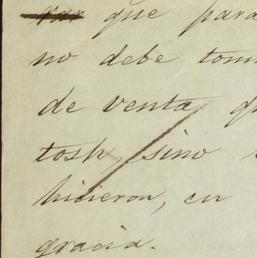 que para
no debe tom
de venta, q
tosh, sino
hicieron, en
gracia.